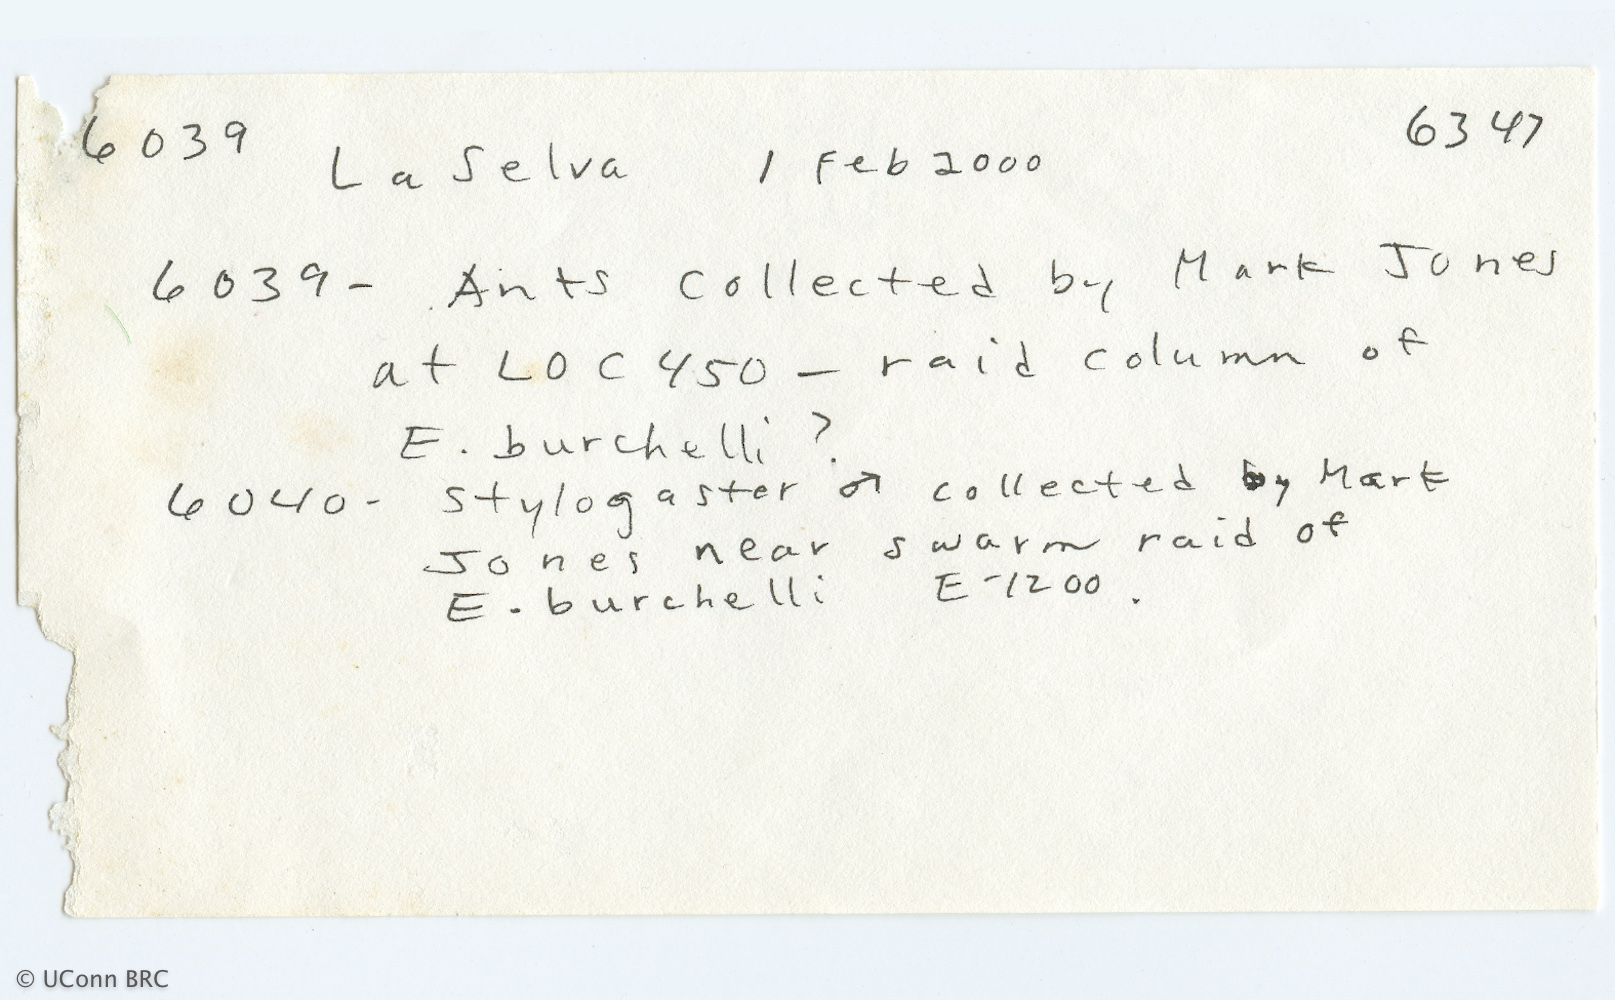 6039
La Selva 1 Feb 2000
6347
6039 - Ants collected by Mark Jones
at LOC 450 - raid column of
E. burchelli ?
6040 - Stylogaster ♂ collected by Mark
Jones near swarm raid of
E. burchelli E-1200.
© UConn BRC